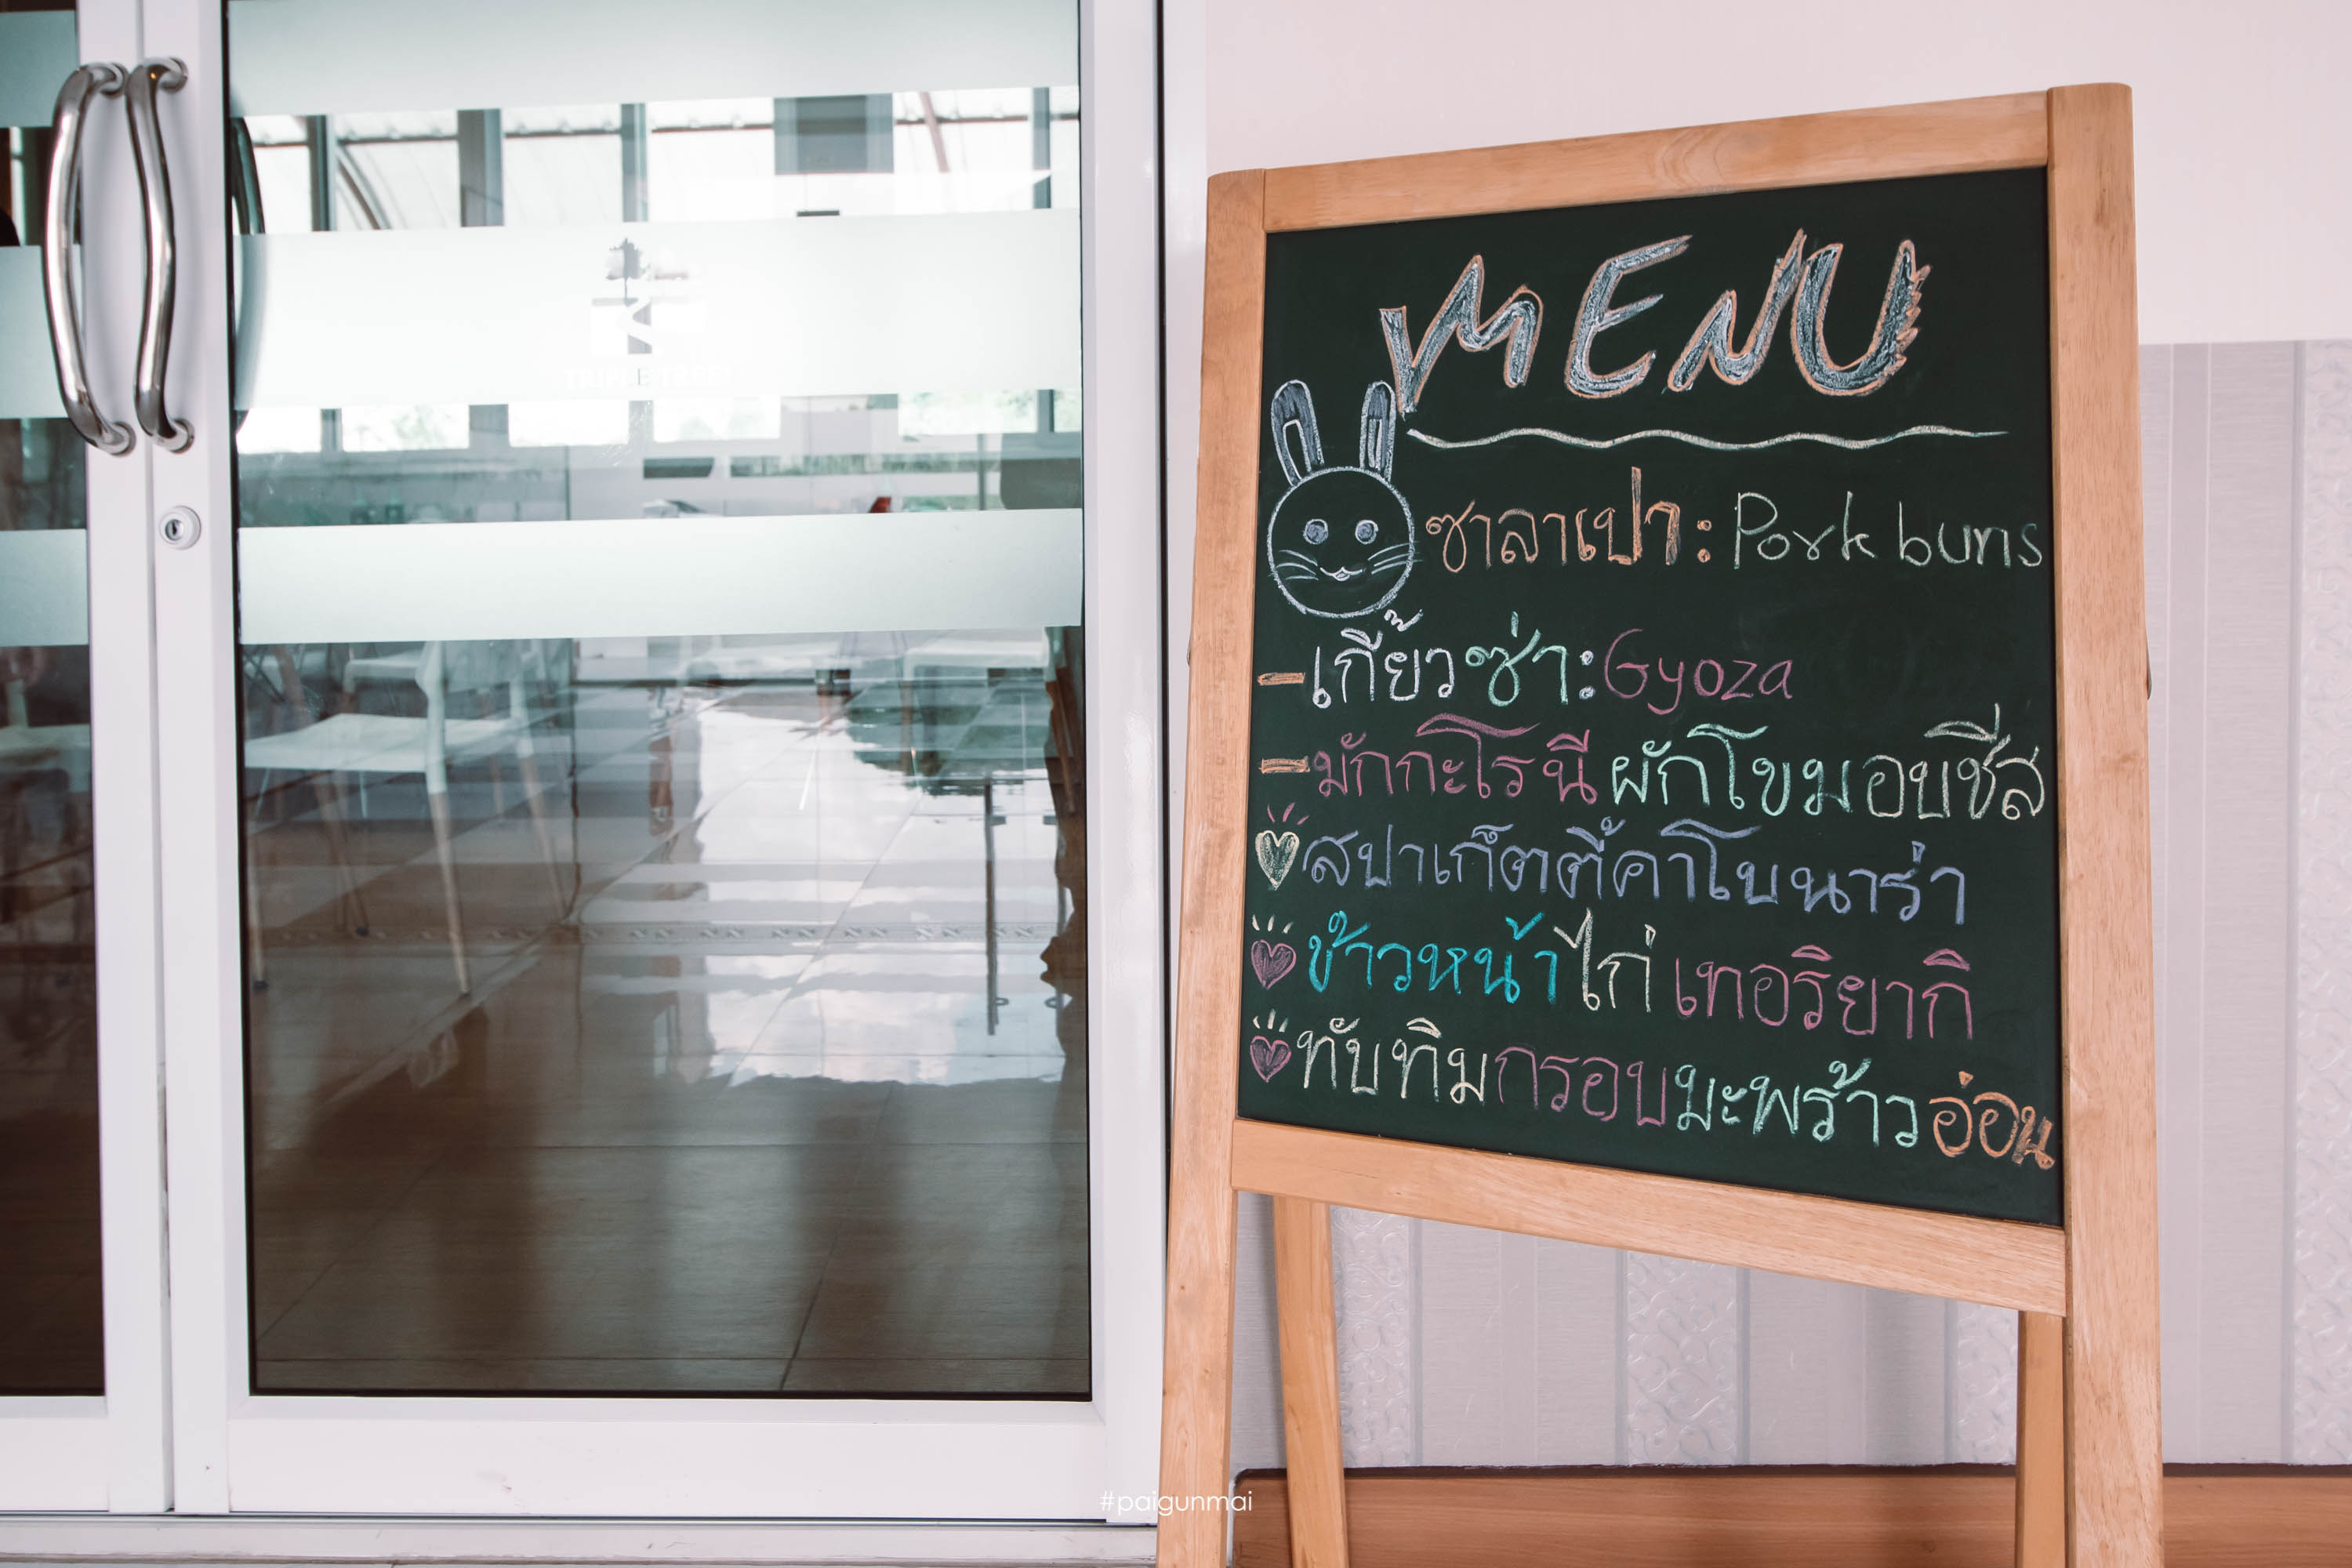 TRIPLE TREE
MENU
ซาลาเปา : Pork buns
- เกี๊ยวซ่า : Gyoza
- มักกะโรนีผักโขมอบชีส
สปาเก็ตตี้คาโบนาร่า
ข้าวหน้าไก่เทอริยากิ
ทับทิมกรอบมะพร้าวอ่อน
#paigunmai